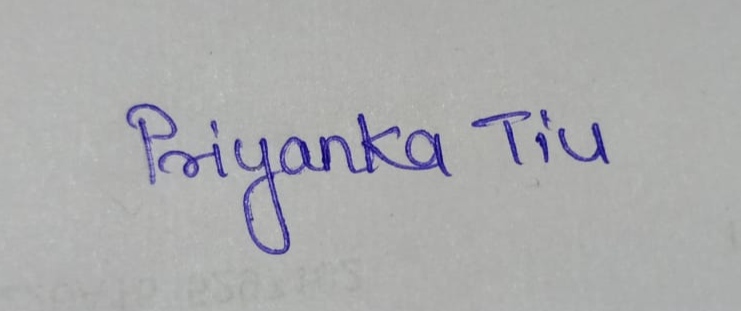 Priyanka Tiu